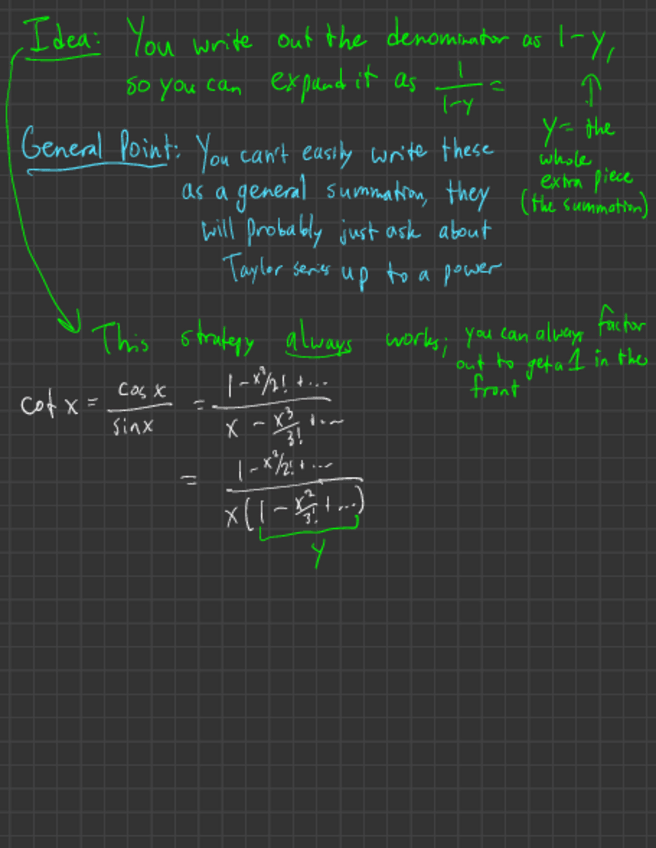 Idea: You write out the denominator as 1-y,
so you can expand it as 1/(1-y) =
↑
y = the
whole
extra piece
(the summation)
General Point: You can't easily write these
as a general summation, they
will probably just ask about
Taylor series up to a power
This strategy always works; you can always factor
out to get a 1 in the
front
cot x = cos x / sin x = (1 - x²/2! + ...) / (x - x³/3! + ...)
= (1 - x²/2! + ...) / (x(1 - x²/3! + ...))
y